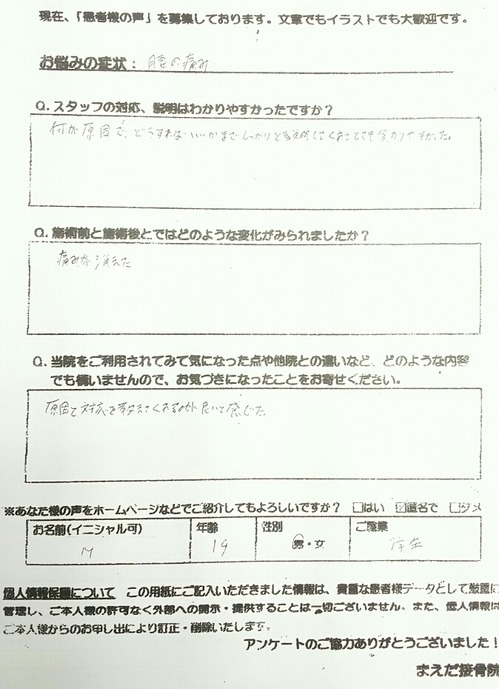 現在、「患者様の声」を募集しております。文章でもイラストでも大歓迎です。
お悩みの症状：腰の痛み
Q. スタッフの対応、説明はわかりやすかったですか？
何が原因で、どうすればいいかまでしっかりと教えてくれてとても分かりやすかった。
Q. 施術前と施術後とではどのような変化がみられましたか？
痛みが消えた
Q. 当院をご利用されてみて気になった点や他院との違いなど、どのような内容
でも構いませんので、お気づきになったことをお寄せください。
原因と対応を教えてくれるのが良いと感じた。
※あなた様の声をホームページなどでご紹介してもよろしいですか？ □はい ☑匿名で □ダメ
お名前(イニシャル可) 年齢 性別 ご職業
M 19 男・女 学生
個人情報保護について この用紙にご記入いただきました情報は、貴重な患者様データとして厳重に
管理し、ご本人様の許可なく外部への開示・提供することは一切ございません。また、個人情報は
ご本人様からのお申し出により訂正・削除いたします。
アンケートのご協力ありがとうございました！
まえだ接骨院